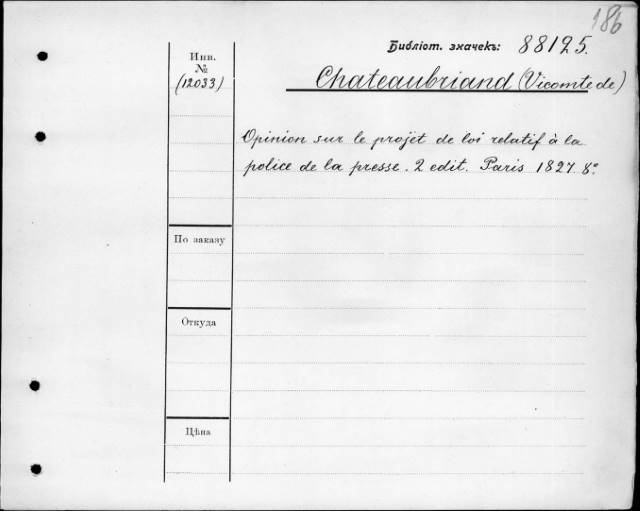 186
Библіот. значекъ: 88125.
Инв.
№
(12033)
Chateaubriand (Vicomte de)
Opinion sur le projet de loi relatif à la
police de la presse. 2 edit. Paris 1827. 8º
По заказу
Откуда
Цѣна